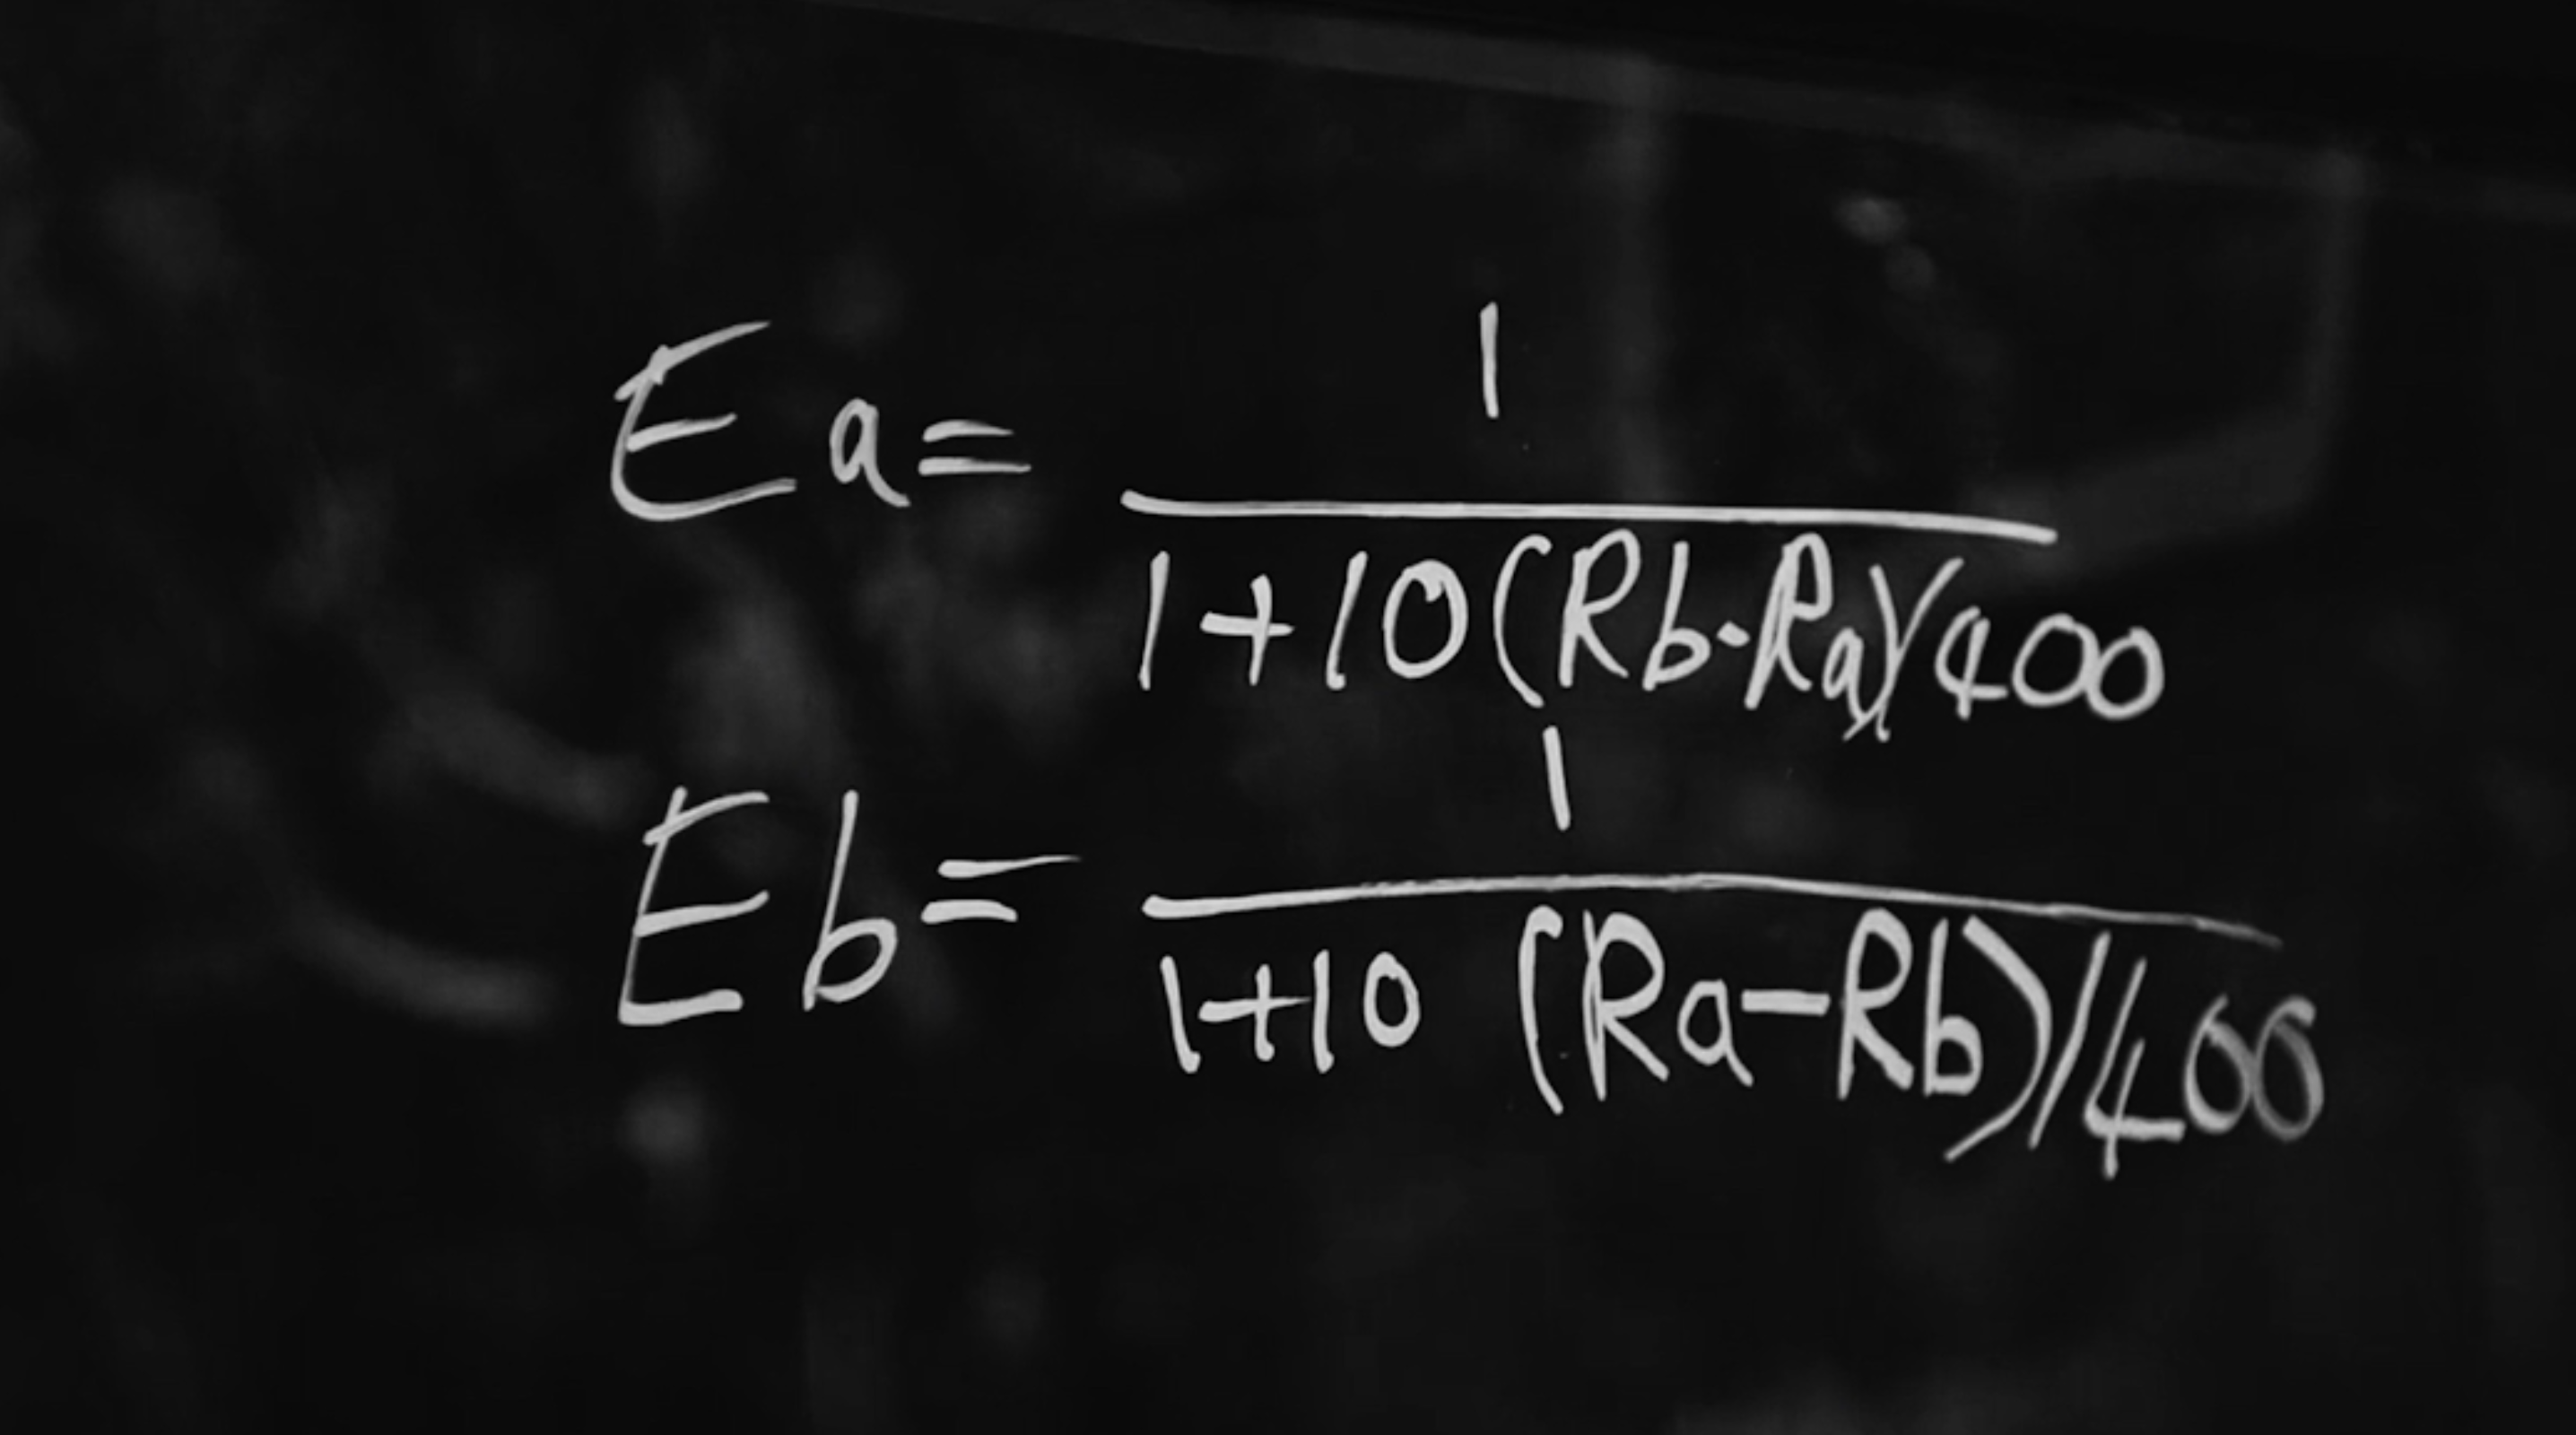 Ea = 1
1+10(Rb-Ra)/400
Eb = 1
1+10 (Ra-Rb)/400